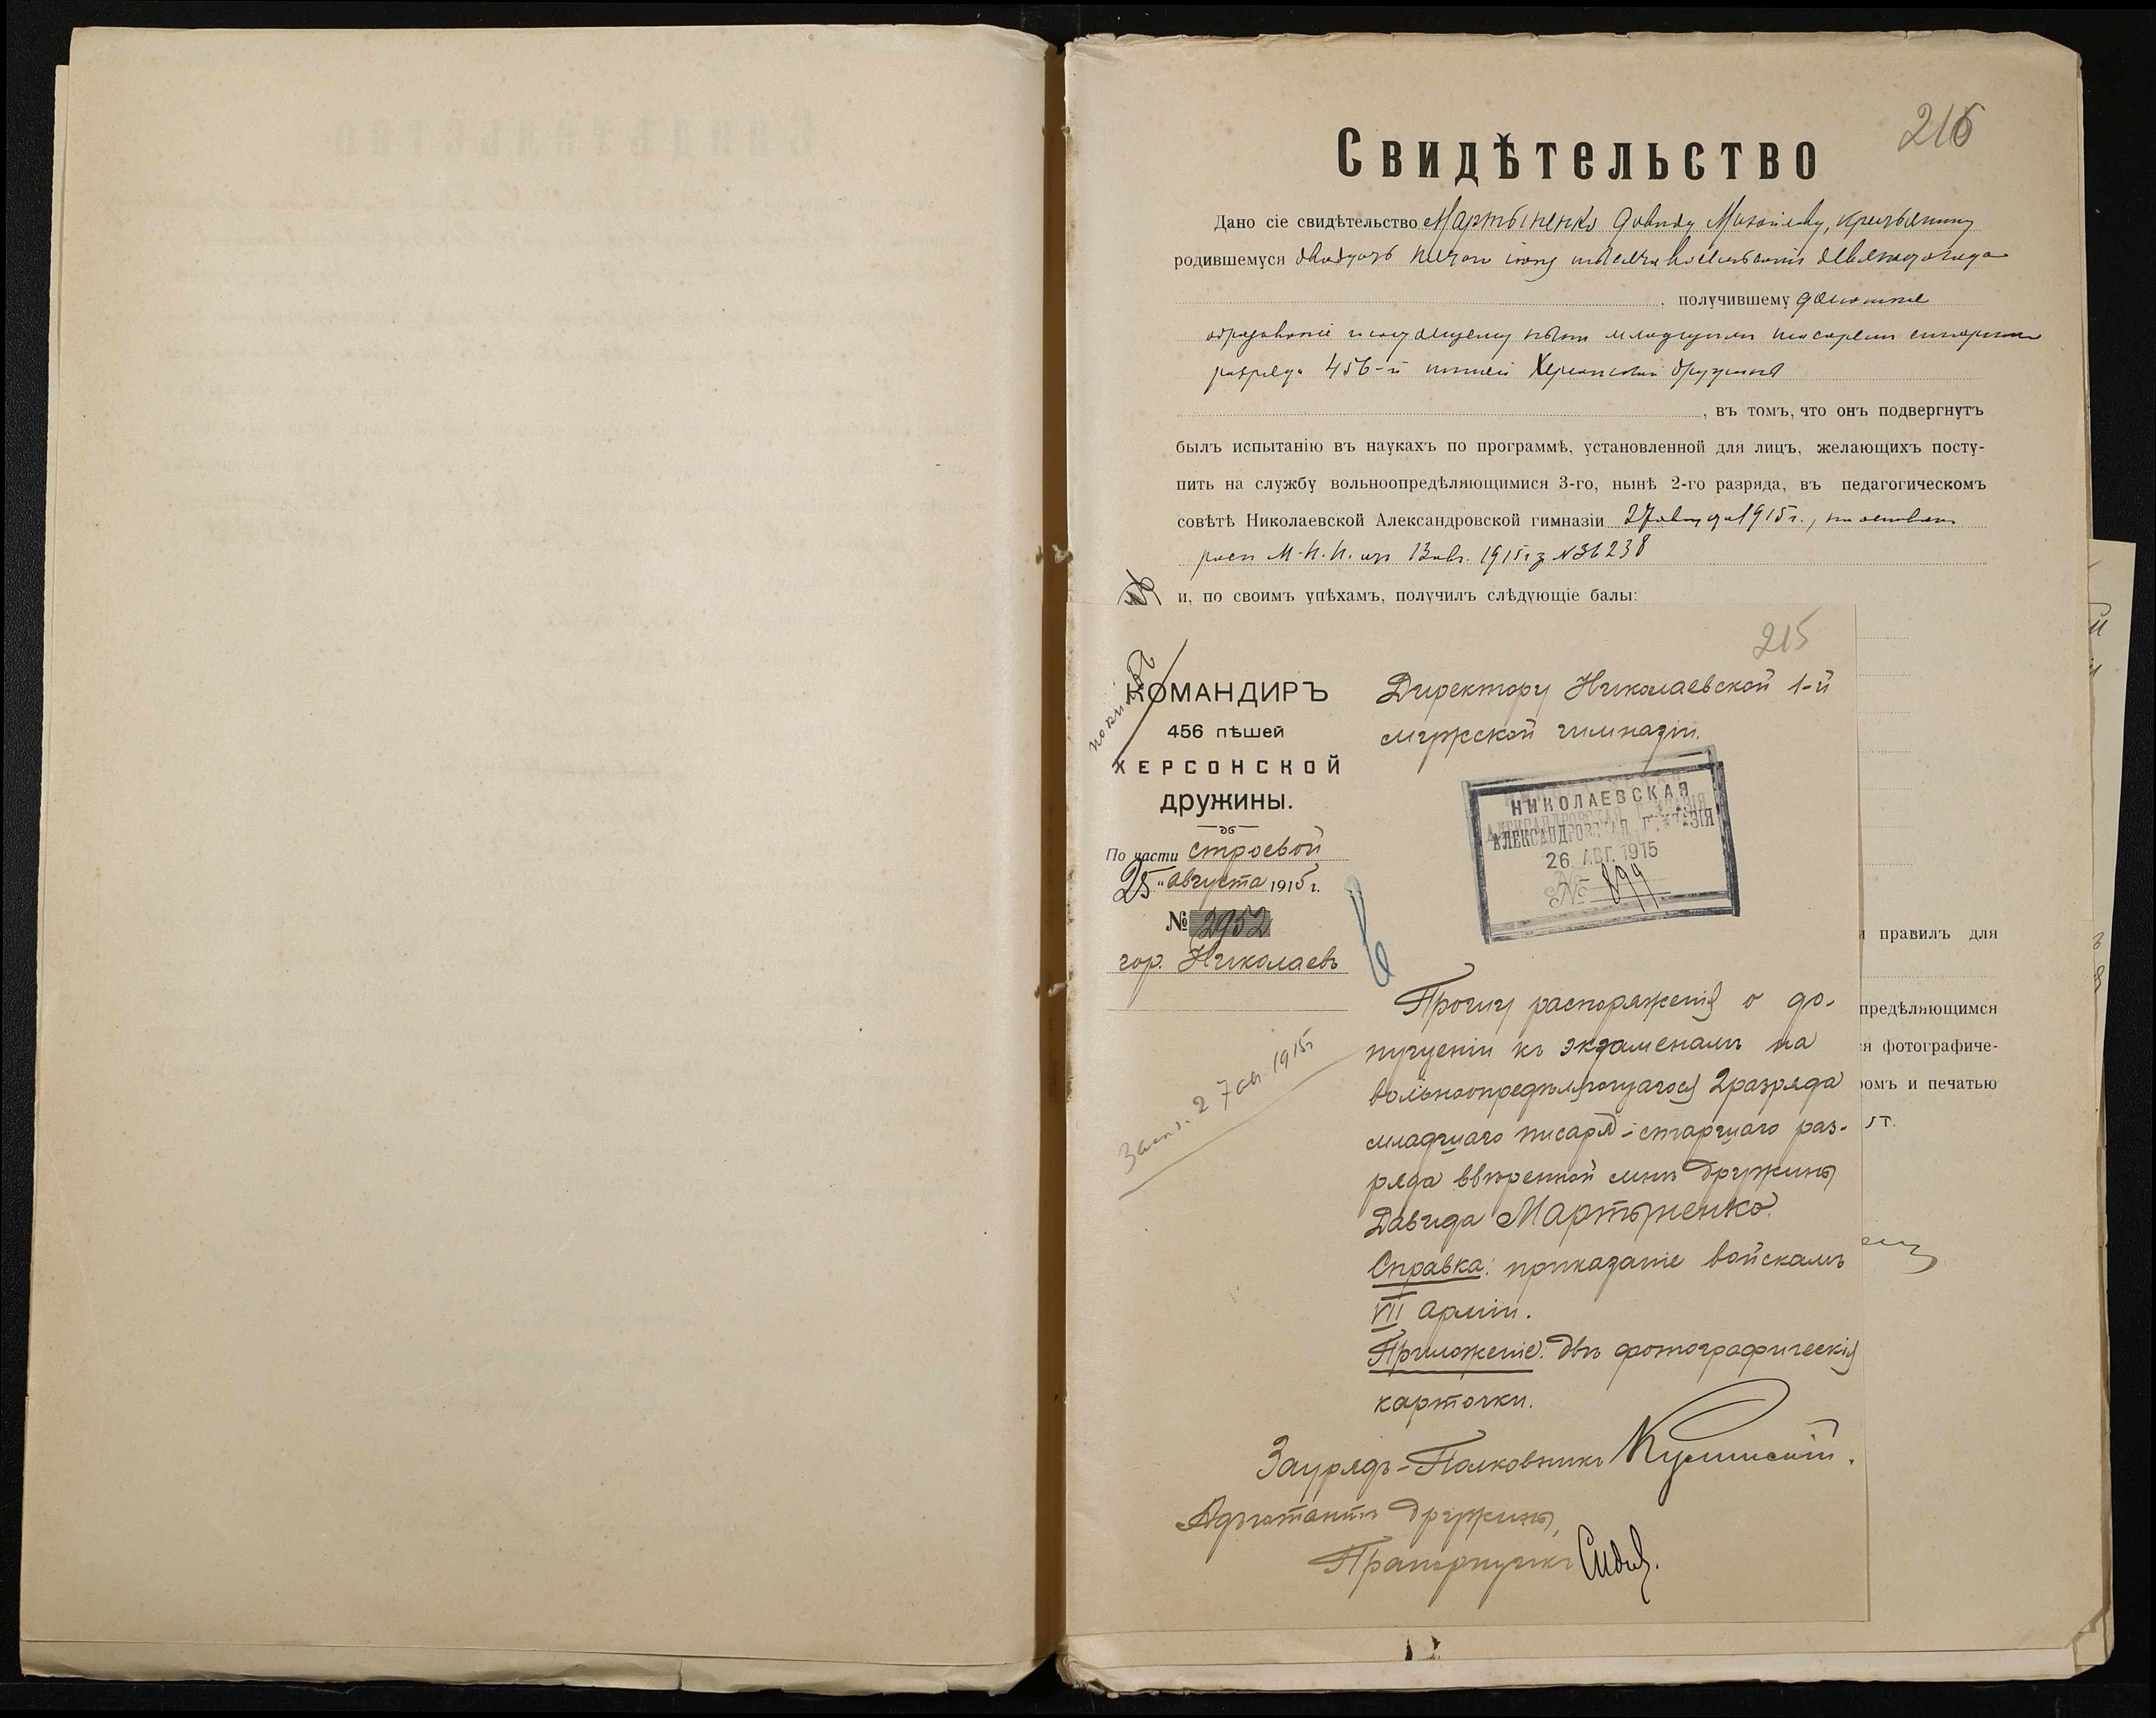 216
Свидѣтельство
Дано сіе свидѣтельство Мартыненко Давиду Михайлову, крестьянину
родившемуся двадцать пятаго іюня тысяча восемьсотъ девяностаго года
получившему домашнее
образованіе и состоящему нынѣ младшимъ писаремъ старшаго
разряда 456-й пѣшей Херсонской дружины
, въ томъ, что онъ подвергнутъ
былъ испытанію въ наукахъ по программѣ, установленной для лицъ, желающихъ посту-
пить на службу вольноопредѣляющимися 3-го, нынѣ 2-го разряда, въ педагогическомъ
совѣтѣ Николаевской Александровской гимназіи 27 августа 1915 г., на основан.
расп М. Н. П. отъ 13 авг. 1915 г з № 36238
и, по своимъ упѣхамъ, получилъ слѣдующіе балы:
215
КОМАНДИРЪ
456 пѣшей
ХЕРСОНСКОЙ
дружины.
По части строевой
25 " августа 1915 г.
№ 2952
гор. Николаевъ
Директору Николаевской 1-й
мужской гимназіи.
НИКОЛАЕВСКАЯ
АЛЕКСАНДРОВСКАЯ ГИМНАЗІЯ
26. АВГ. 1915
№ 899
Прошу распоряженія о до-
пущеніи къ экзаменамъ на
вольноопредѣляющагося 2 разряда
младшаго писаря старшаго раз-
ряда ввѣренной мнѣ дружины
Давида Мартыненко.
Справка: приказаніе войскамъ
VII арміи.
Приложеніе: двѣ фотографическія
карточки.
Заурядъ-Полковникъ
Адъютантъ дружины,
Прапорщикъ
27 авг. 1915 г
и правилъ для
предѣляющимся
ся фотографиче-
ромъ и печатью
5 г.